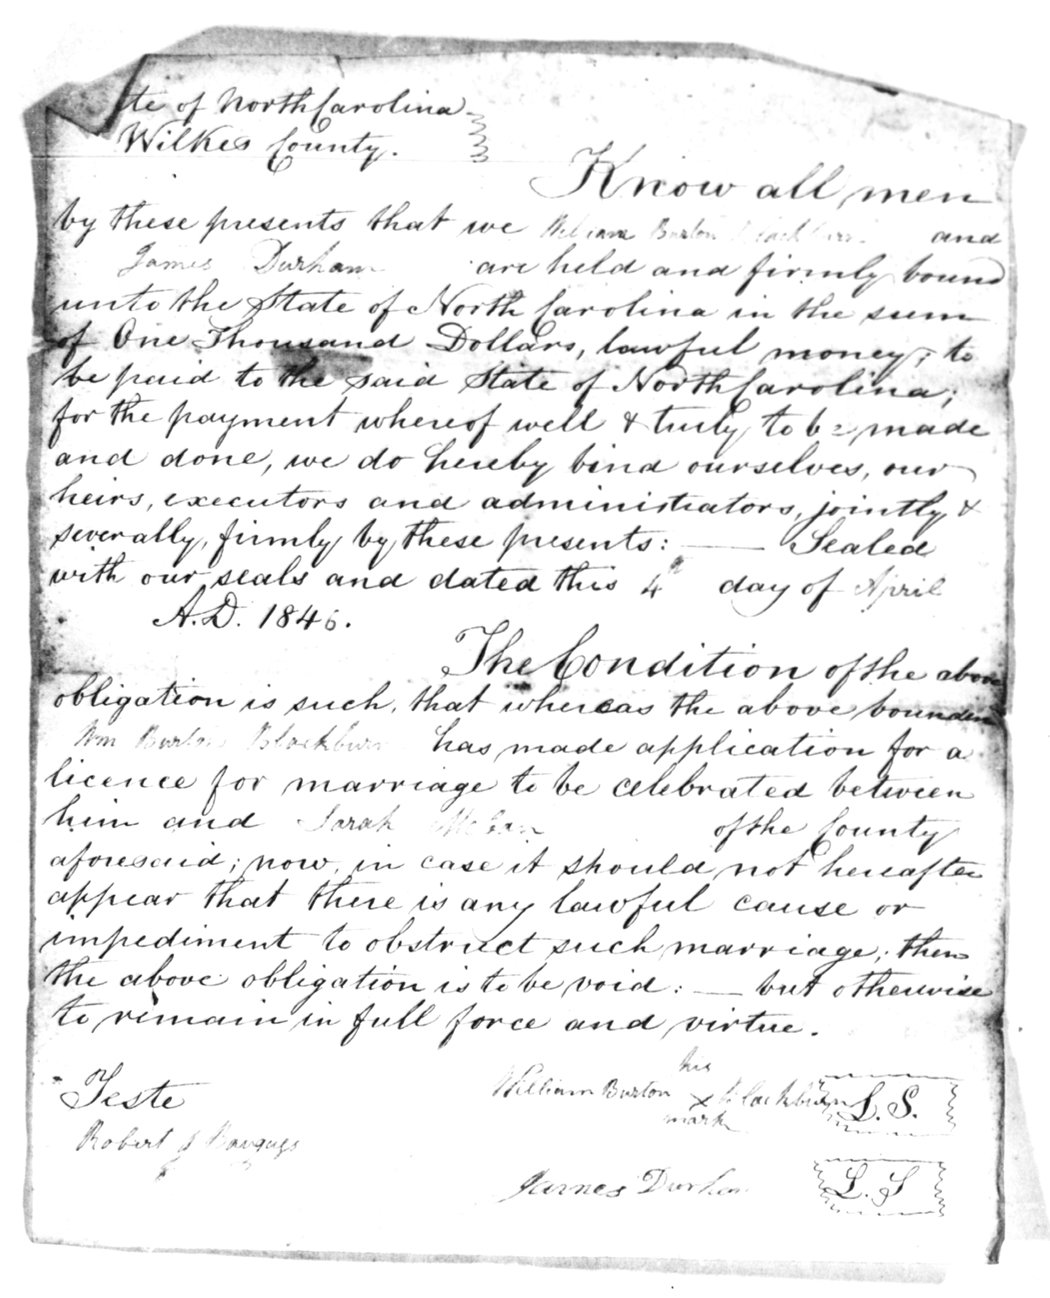 te of North Carolina
Wilkes County.
Know all men
by these presents that we William Burton Blackburn and
James Durham are held and firmly bound
unto the State of North Carolina in the sum
of One Thousand Dollars, lawful money; to
be paid to the said State of North Carolina;
for the payment whereof well & truly to be made
and done, we do hereby bind ourselves, our
heirs, executors and administrators, jointly &
severally, firmly by these presents: — Sealed
with our seals and dated this 4th day of April
A.D. 1846.
The Condition of the above
obligation is such, that whereas the above bounden
Wm Burton Blackburn has made application for a
licence for marriage to be celebrated between
him and Sarah of the County
aforesaid; now, in case it should not hereafter
appear that there is any lawful cause or
impediment to obstruct such marriage; then
the above obligation is to be void: — but otherwise
to remain in full force and virtue.
his
Teste William Burton x Blackburn L.S.
mark
Robert
James Durham L.S